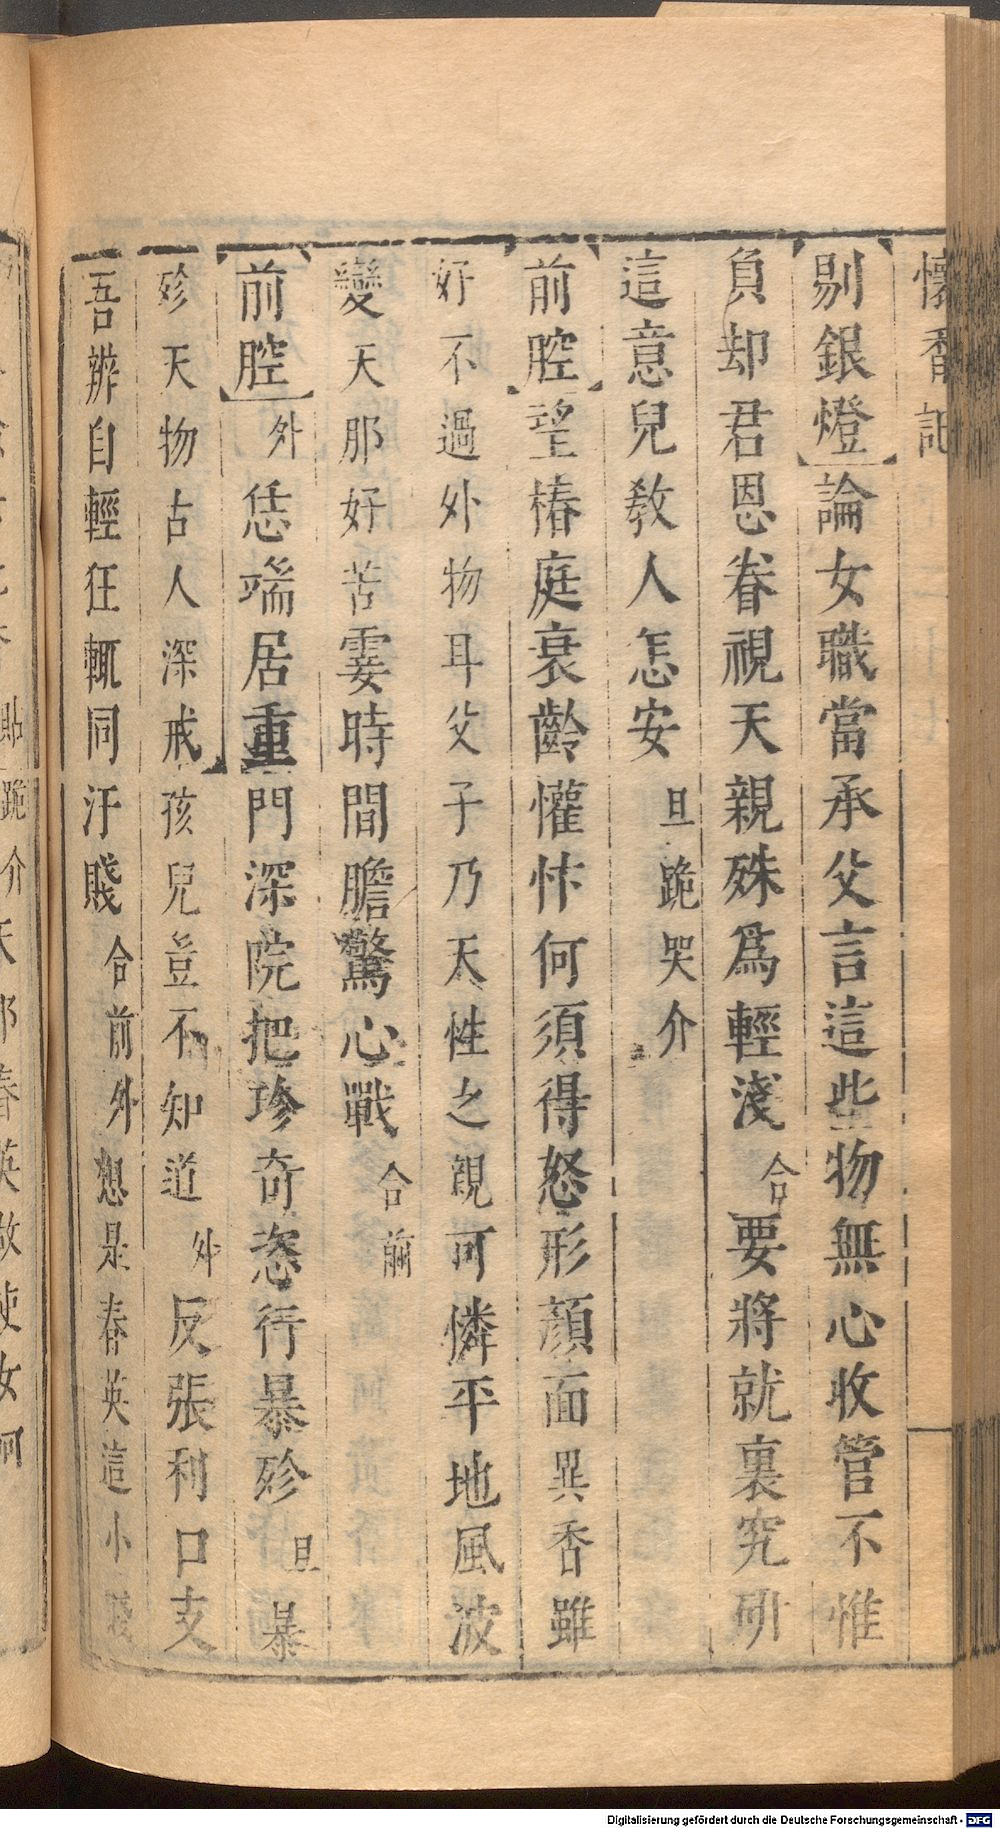 懷香記
【剔銀燈】論女職當承父言這些物無心收管不惟
負却君恩眷視天親殊爲輕淺合要將就裏究硏
這意兒教人怎安旦跪哭介
【前腔】望椿庭衰齡懽忭何須得怒形顏面異香雖
好不過外物耳父子乃天性之親可憐平地風波
變天那好苦霎時間膽驚心戰合前
【前腔】外恁端居重門深院把珍奇恣行暴殄旦暴
殄天物古人深戒孩兒豈不知道外反張利口支
吾辨自輕狂輒同汙賤合前外想是春英這小賤
跪介天那春英敢使女何
Digitalisierung gefördert durch die Deutsche Forschungsgemeinschaft - DFG